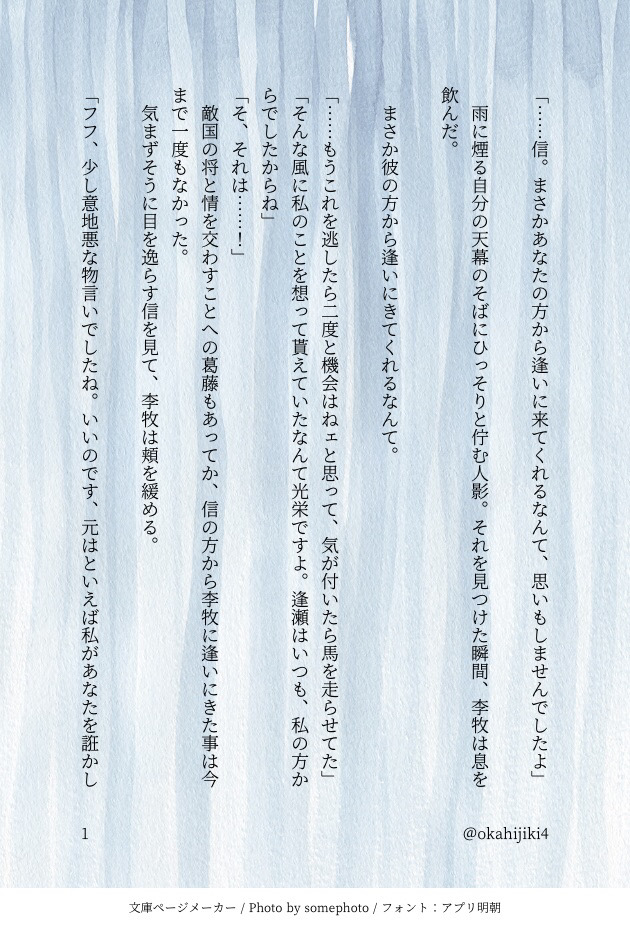 「……信。まさかあなたの方から逢いに来てくれるなんて、思いもしませんでしたよ」
　雨に煙る自分の天幕のそばにひっそりと佇む人影。それを見つけた瞬間、李牧は息を
飲んだ。
　まさか彼の方から逢いにきてくれるなんて。
「……もうこれを逃したら二度と機会はねェと思って、気が付いたら馬を走らせてた」
「そんな風に私のことを想って貰えていたなんて光栄ですよ。逢瀬はいつも、私の方か
らでしたからね」
「そ、それは……！」
　敵国の将と情を交わすことへの葛藤もあってか、信の方から李牧に逢いにきた事は今
まで一度もなかった。
　気まずそうに目を逸らす信を見て、李牧は頬を緩める。
「フフ、少し意地悪な物言いでしたね。いいのです、元はといえば私があなたを誑かし
1
@okahijiki4
文庫ページメーカー / Photo by somephoto / フォント：アプリ明朝